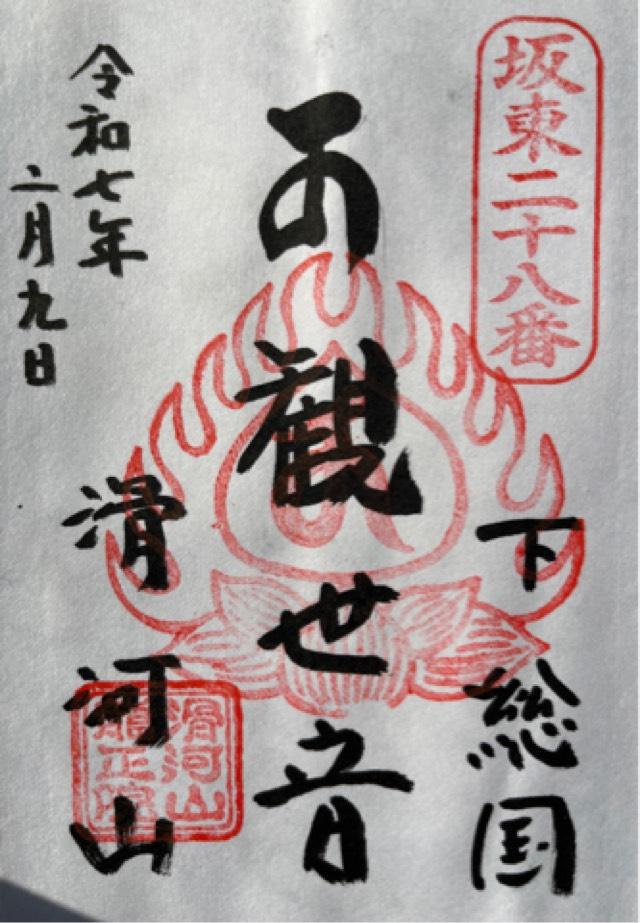 坂東二十八番
下総国
観世音
滑河山
滑河山
龍正院
令和七年
二月九日